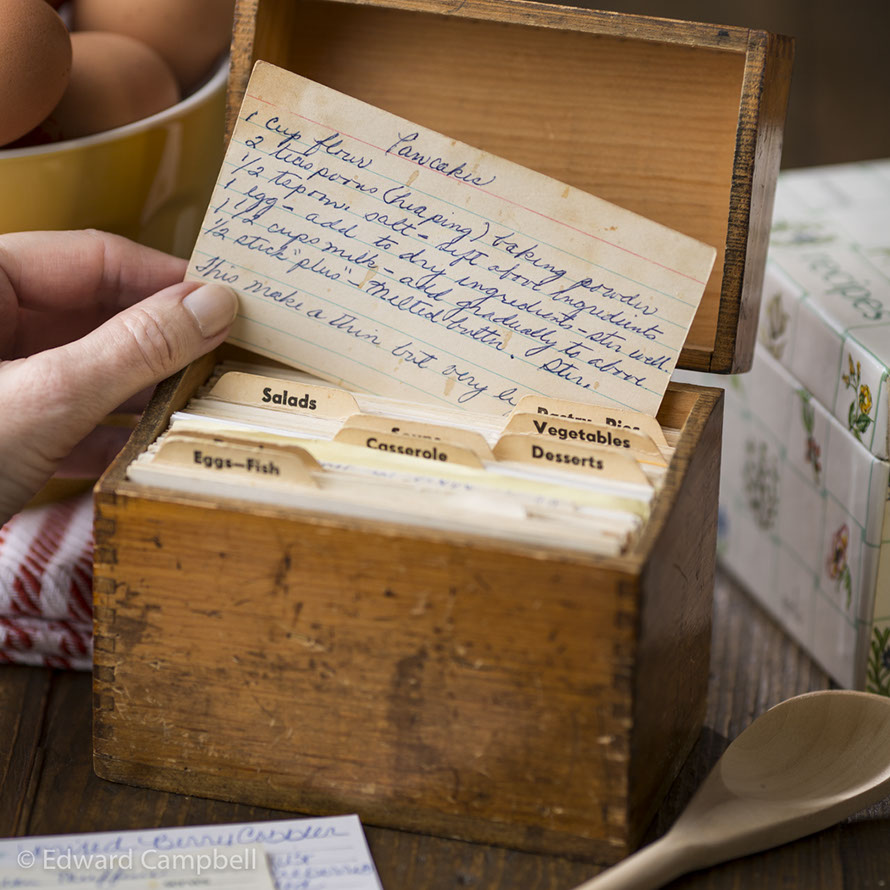 Pancakes
1 cup flour
2 teaspoons (heaping) baking powder
1/2 tespoon salt - sift above Ingredients
1 egg - add to dry ingredients - stir well.
1 1/2 cups milk - add gradually to above
1/2 stick "plus" - Melted butter. Stir
This make a thin but very
Salads
Pastry-Pies
Vegetables
Casserole
Desserts
Eggs-Fish
recipes
Berry Cobbler
© Edward Campbell